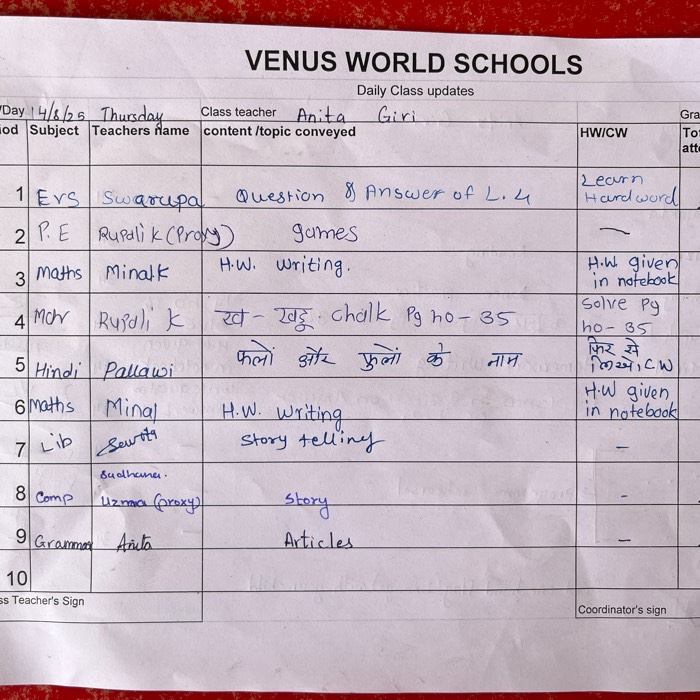 VENUS WORLD SCHOOLS
Daily Class updates
Day 14/8/25 Thursday Class teacher Anita Giri Gra
iod Subject Teachers name content /topic conveyed HW/CW To
att
1 Evs Swarupa Question & Answer of L. 4 Learn
Hard word
2 P.E Rupali k (Proxy) games —
3 Maths Minal k H.W. writing. H.W given
in notebook
4 Mar Rupali k Chalk Pg no - 35 Solve Pg
no - 35
5 Hindi Pallawi फलों और फुलों के नाम फिर से
C.W
6 Maths Minal H.W. writing H.W given
in notebook
7 Lib Story telling -
Sadhana.
8 Comp Uzma (proxy) Story -
9 Grammar Anita Articles -
10
ss Teacher's Sign Coordinator's sign